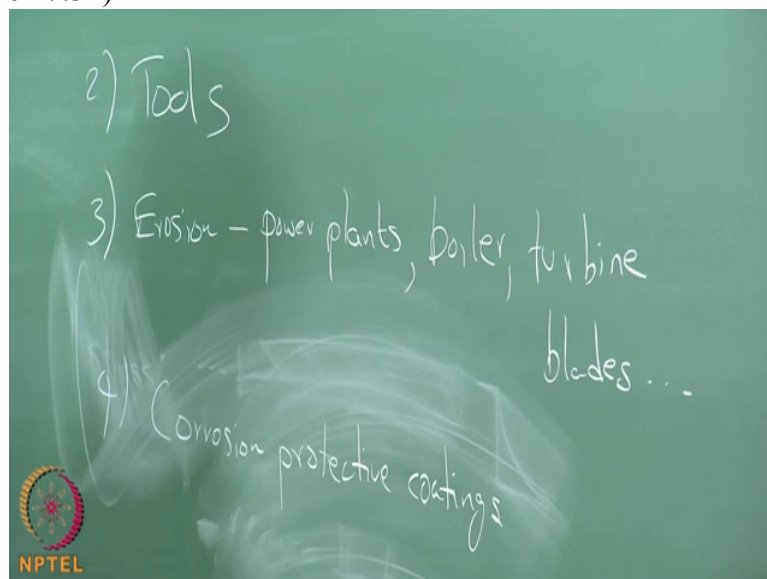 2) Tools
3) Erosion – power plants, boiler, turbine
blades...
4) Corrosion protective coatings
NPTEL